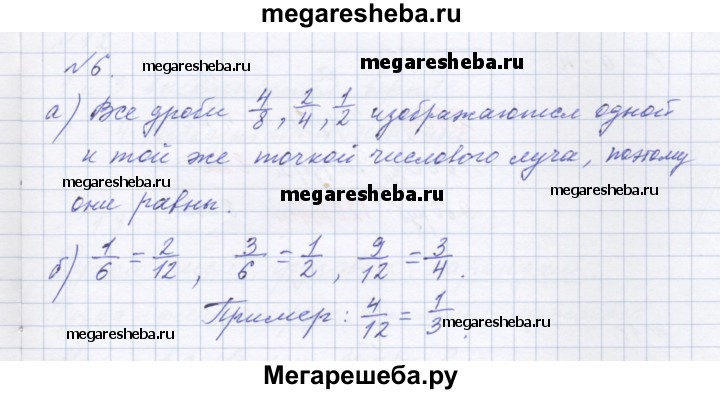 megaresheba.ru
№6. megaresheba.ru megaresheba.ru
а) Все дроби 4/8, 2/4, 1/2 изображаются одной
и той же точкой числового луча, поэтому
megaresheba.ru megaresheba.ru megaresheba.ru
они равны.
б) 1/6 = 2/12, 3/6 = 1/2, 9/12 = 3/4.
Пример: 4/12 = 1/3.
megaresheba.ru megaresheba.ru
Мегарешеба.ру